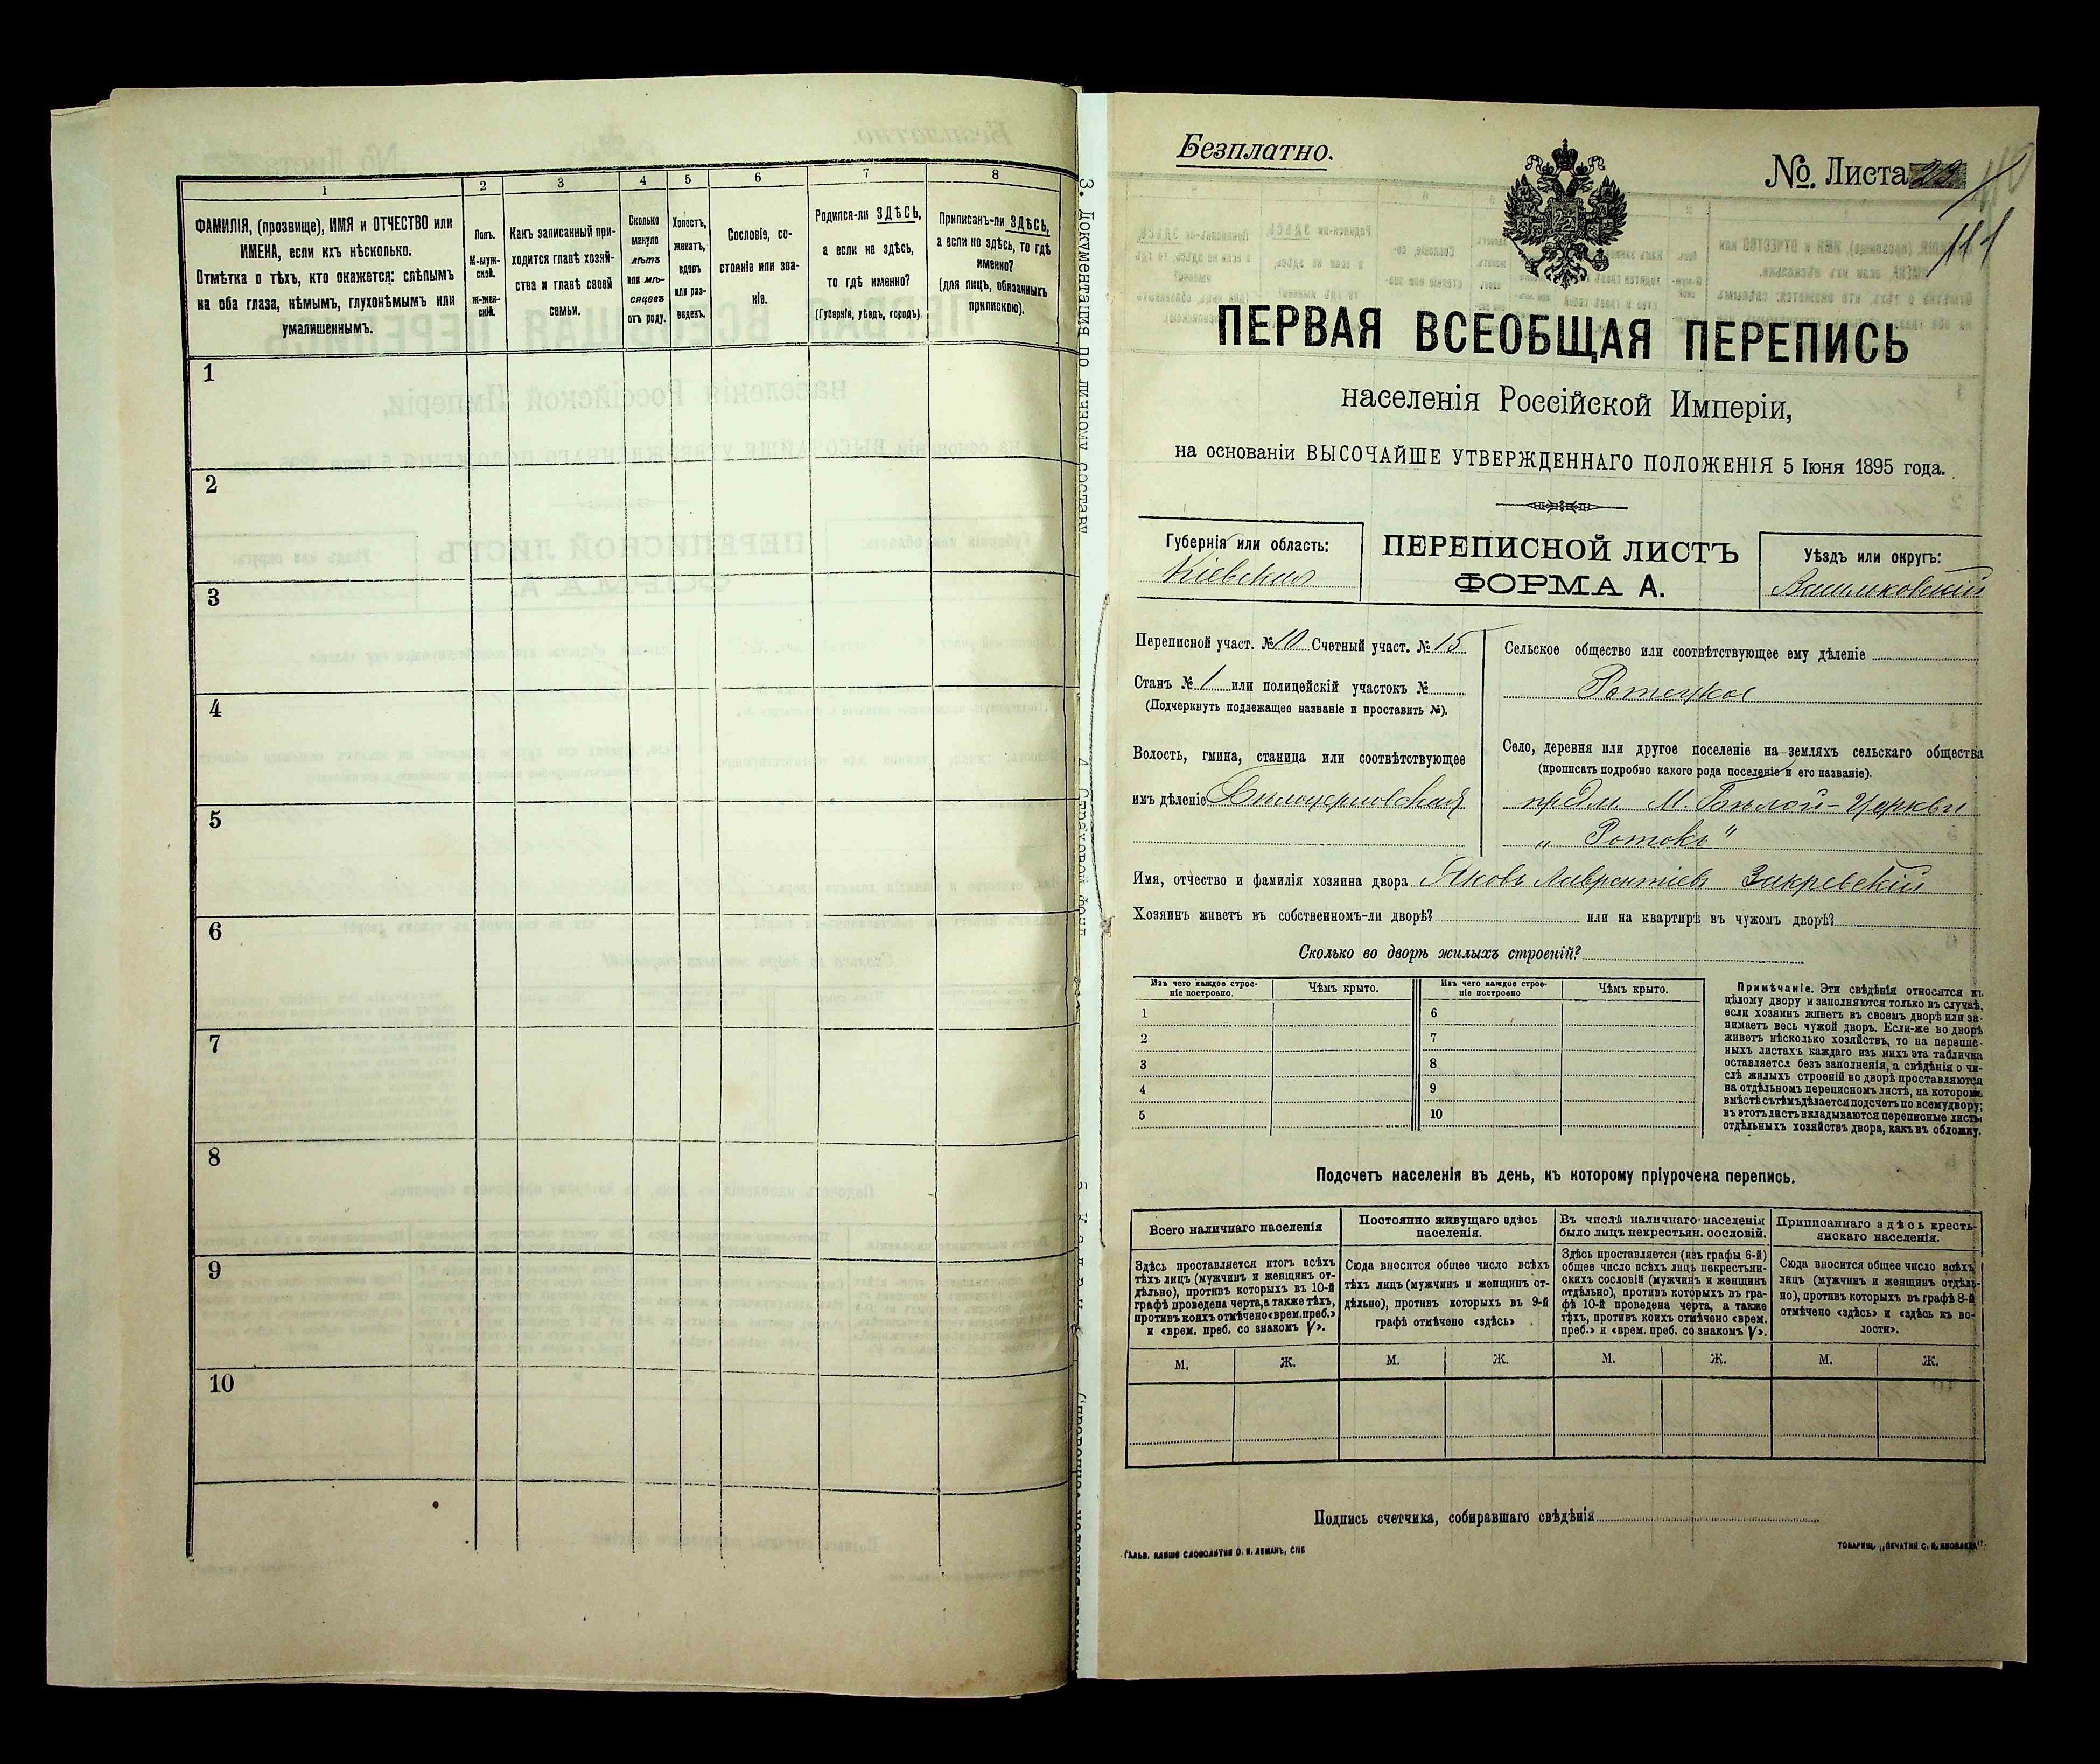 1
2
3
4
5
6
7
8
ФАМИЛІЯ, (прозвище), ИМЯ и ОТЧЕСТВО или
ИМЕНА, если ихъ нѣсколько.
Отмѣтка о тѣхъ, кто окажется: слѣпымъ
на оба глаза, нѣмымъ, глухонѣмымъ или
умалишеннымъ.
Полъ.
М-муж-
ской.
Ж-жен-
скій.
Какъ записанный при-
ходится главѣ хозяй-
ства и главѣ своей
семьи.
Сколько
минуло
лѣтъ
или мѣ-
сяцевъ
отъ роду.
Холостъ,
женатъ,
вдовъ
или раз-
веденъ.
Сословіе, со-
стояніе или зва-
ніе.
Родился-ли ЗДѢСЬ,
а если не здѣсь,
то гдѣ именно?
(Губернія, уѣздъ, городъ).
Приписанъ-ли ЗДѢСЬ,
а если не здѣсь, то гдѣ
именно?
(для лицъ, обязанныхъ
припискою).
1
2
3
4
5
6
7
8
9
10
3. Документация по личному составу
Страховой фонд
Безплатно.
№. Листа 23
111
ПЕРВАЯ ВСЕОБЩАЯ ПЕРЕПИСЬ
населенія Россійской Имперіи,
на основаніи ВЫСОЧАЙШЕ УТВЕРЖДЕННАГО ПОЛОЖЕНІЯ 5 Іюня 1895 года.
Губернія или область:
Кіевская
ПЕРЕПИСНОЙ ЛИСТЪ
ФОРМА А.
Уѣздъ или округъ:
Васильковскій
Переписной участ. № 10 Счетный участ. № 15
Станъ № 1 или полицейскій участокъ №
(Подчеркнуть подлежащее названіе и проставить №).
Волость, гмина, станица или соотвѣтствующее
имъ дѣленіе Бѣлоцерковская
Сельское общество или соотвѣтствующее ему дѣленіе
Ротецкое
Село, деревня или другое поселеніе на земляхъ сельскаго общества
(прописать подробно какого рода поселеніе и его названіе).
предм. М. Бѣлой-Церкви
„Ротокъ"
Имя, отчество и фамилія хозяина двора Яковъ Лаврентіевъ Закревскій
Хозяинъ живетъ въ собственномъ-ли дворѣ? или на квартирѣ въ чужомъ дворѣ?
Сколько во дворѣ жилыхъ строеній?
Изъ чего каждое строе-
ніе построено.
Чѣмъ крыто.
Изъ чего каждое строе-
ніе построено
Чѣмъ крыто.
1
2
3
4
5
6
7
8
9
10
Примѣчаніе. Эти свѣдѣнія относятся къ
цѣлому двору и заполняются только въ случаѣ,
если хозяинъ живетъ въ своемъ дворѣ или за-
нимаетъ весь чужой дворъ. Если-же во дворѣ
живетъ нѣсколько хозяйствъ, то на перепис-
ныхъ листахъ каждаго изъ нихъ эта табличка
оставляется безъ заполненія, а свѣдѣнія о чи-
слѣ жилыхъ строеній во дворѣ проставляются
на отдѣльномъ переписномъ листѣ, на которомъ
вмѣстѣ съ тѣмъ дѣлается подсчетъ по всему двору;
въ этотъ листъ вкладываются переписные листы
отдѣльныхъ хозяйствъ двора, какъ въ обложку.
Подсчетъ населенія въ день, къ которому пріурочена перепись.
Всего наличнаго населенія
Здѣсь проставляется итогъ всѣхъ
тѣхъ лицъ (мужчинъ и женщинъ от-
дѣльно), противъ которыхъ въ 10-й
графѣ проведена черта, а также тѣхъ,
противъ коихъ отмѣчено «врем. преб.»
и «врем. преб. со знакомъ V».
Постоянно живущаго здѣсь
населенія.
Сюда вносится общее число всѣхъ
тѣхъ лицъ (мужчинъ и женщинъ от-
дѣльно), противъ которыхъ въ 9-й
графѣ отмѣчено «здѣсь»
Въ числѣ наличнаго населенія
было лицъ некрестьян. сословій.
Здѣсь проставляется (изъ графы 6-й)
общее число всѣхъ лицъ некрестьян-
скихъ сословій (мужчинъ и женщинъ
отдѣльно), противъ которыхъ въ гра-
фѣ 10-й проведена черта, а также
тѣхъ, противъ коихъ отмѣчено «врем.
преб.» и «врем. преб. со знакомъ V».
Приписаннаго здѣсь кресть-
янскаго населенія.
Сюда вносится общее число всѣхъ
лицъ (мужчинъ и женщинъ отдѣль-
но), противъ которыхъ въ графѣ 8-й
отмѣчено «здѣсь» и «здѣсь къ во-
лости».
М. Ж. М. Ж. М. Ж. М. Ж.
Подпись счетчика, собиравшаго свѣдѣнія
ГАЛЬВ. КЛИШЕ СЛОВОЛИТНИ О. И. ЛЕМАНЪ, СПБ
ТОВАРИЩ. „ПЕЧАТНЯ С. П. ЯКОВЛЕВА".